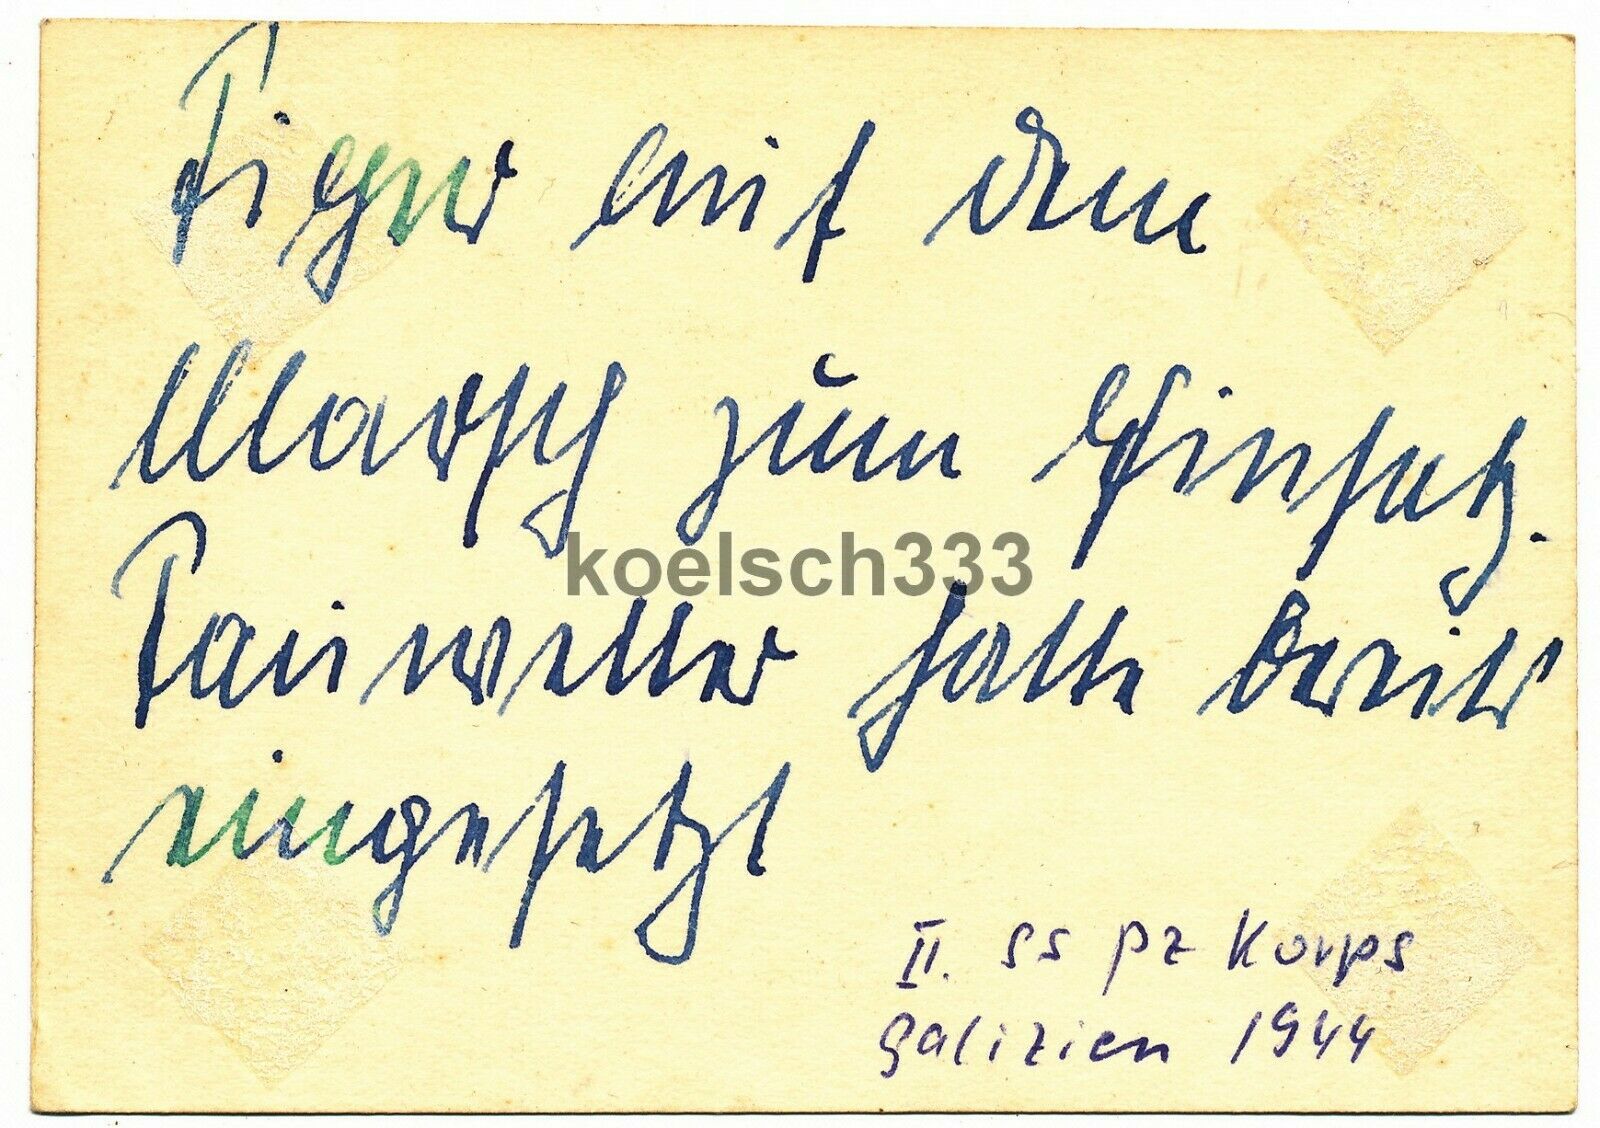 Tiger auf dem
Marsch zum Einsatz.
koelsch333
Tauwetter hatte bereits
eingesetzt
II. SS Pz Korps
Galizien 1944